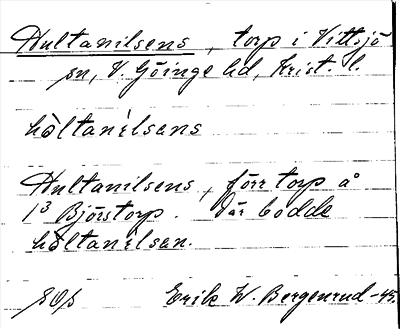 Hultanilsens, torp i Vittsjö
sn, V. Göinge hd, Krist. l.
hòltanílsans
Hultanilsens, förr torp å
1³ Björstorp. Där bodde
hòltanílsan.
Erik W. Bergenrud -45.